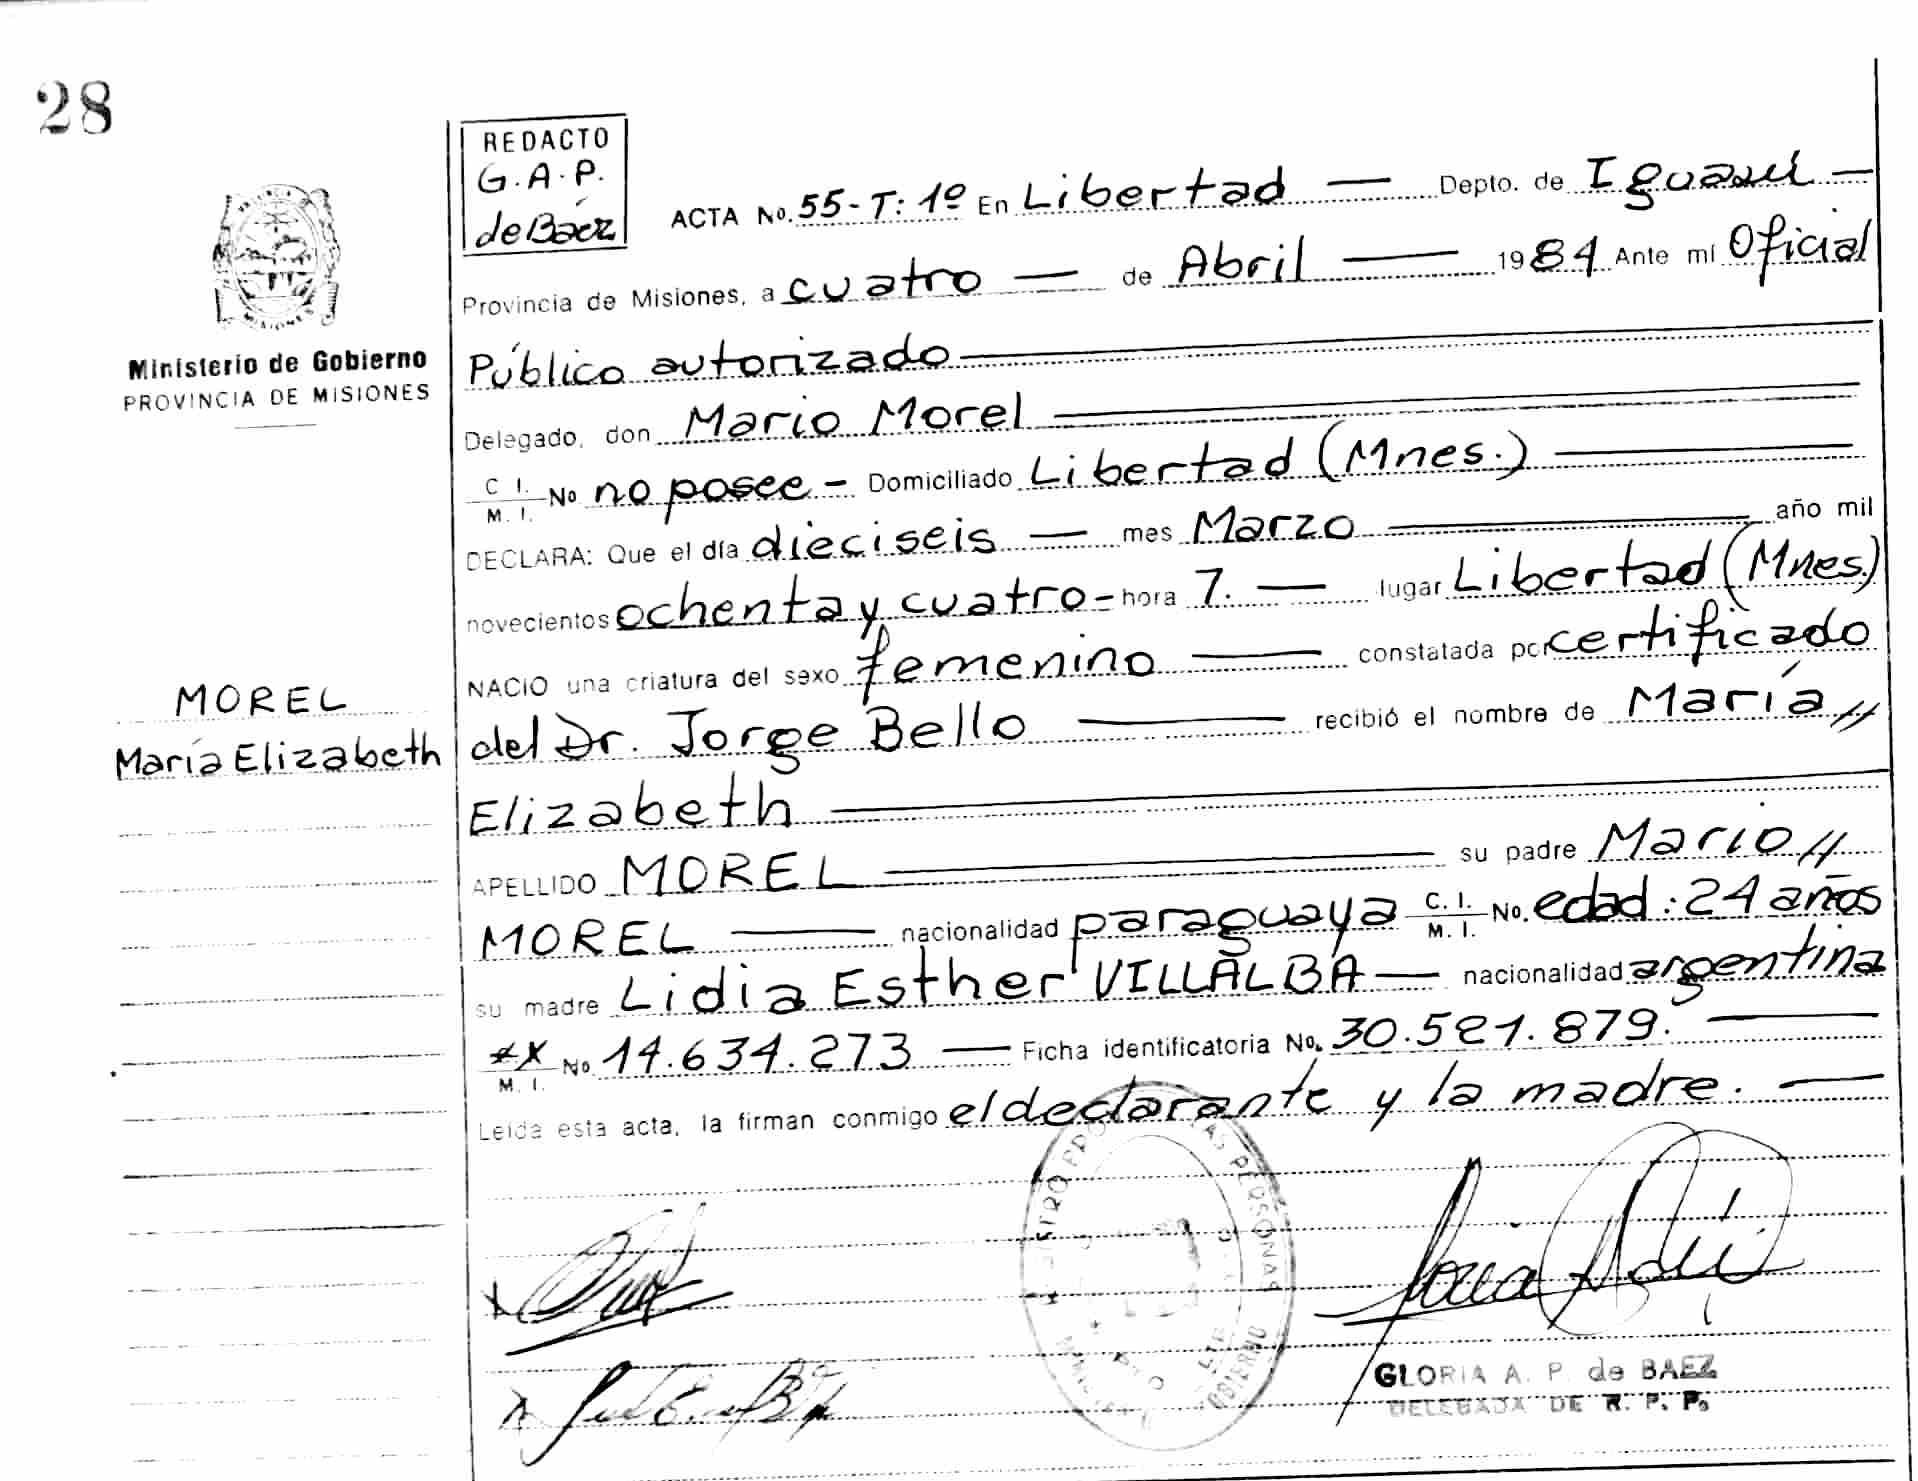 28
REDACTO
G. A. P.
de Báez
ACTA No. 55-T: 1º En Libertad — Depto. de Iguazú —
Provincia de Misiones, a cuatro — de Abril — 1984 Ante mí Oficial
Ministerio de Gobierno
PROVINCIA DE MISIONES
Público autorizado
Delegado, don Mario Morel
C. I. / M. I. No no posee - Domiciliado Libertad (Mnes.)
DECLARA: Que el día dieciseis — mes Marzo — año mil
novecientos ochenta y cuatro - hora 7. — lugar Libertad (Mnes.)
NACIO una criatura del sexo femenino — constatada por certificado
MOREL
María Elizabeth
del Dr. Jorge Bello — recibió el nombre de María //
Elizabeth
APELLIDO MOREL — su padre Mario //
MOREL — nacionalidad paraguaya C. I. / M. I. No. edad: 24 años
su madre Lidia Esther VILLALBA — nacionalidad argentina
M. I. No 14.634.273 — Ficha identificatoria No. 30.521.879. —
Leída esta acta, la firman conmigo el declarante y la madre. —
GLORIA A. P. de BAEZ
DELEGADA DE R. P. P.